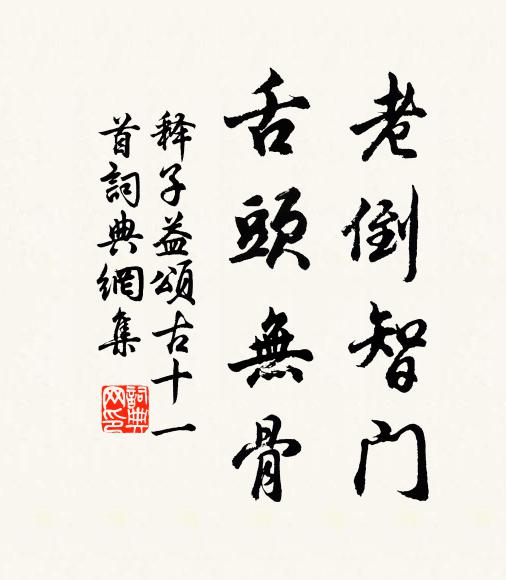 老倒智门
舌頭無骨
释子益頌古十一
首詞典網集
詞典
网印